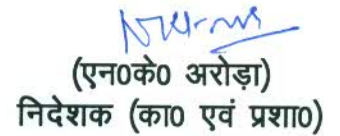 (एन०के० अरोड़ा)
निदेशक (का० एवं प्रशा०)